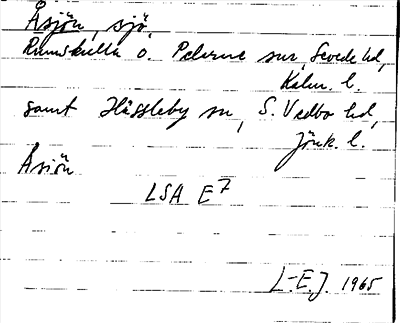 Åsjön, sjö,
Rumskulla o. Pelarne snr, Sevede hd,
Kalm. l.
samt Hässleby sn, S. Vedbo hd,
Jönk. l.
Åsiön
LSA E7
L-E.J. 1965